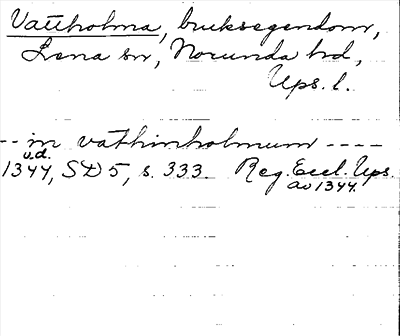 Vattholma, bruksegendom,
Lena sn, Norunda hd,
Ups. l.
-- in vathinholmum ----
u.d.
1344, SD 5, s. 333 Reg. Eccl. Ups.
av 1344.